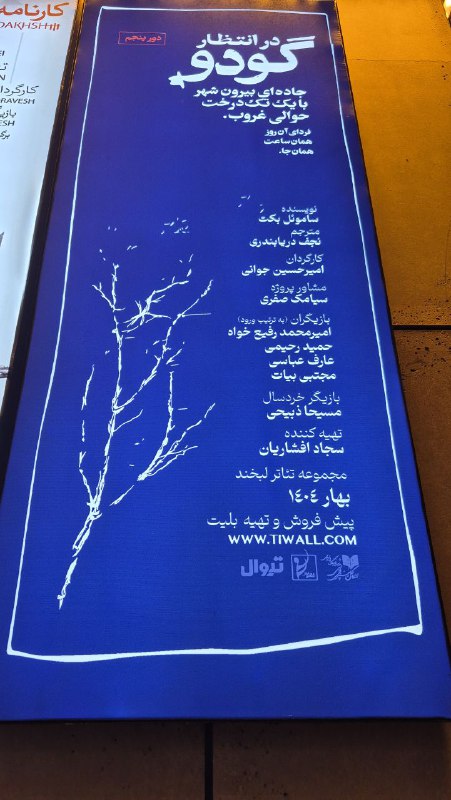 کارنامه
DAKHSH
کارگردان
RAVESH
دور پنجم
در انتظار
گودو
جاده‌ای بیرون شهر
با یک تک درخت
حوالی غروب.
فردای آن روز
همان ساعت
همان جا.
نویسنده
ساموئل بکت
مترجم
نجف دریابندری
کارگردان
امیرحسین جوانی
مشاور پروژه
سیامک صفری
بازیگران (به ترتیب ورود)
امیرمحمد رفیع خواه
حمید رحیمی
عارف عباسی
مجتبی بیات
بازیگر خردسال
مسیحا ذبیحی
تهیه کننده
سجاد افشاریان
مجموعه تئاتر لبخند
بهار ۱۴۰۴
پیش فروش و تهیه بلیت
WWW.TIWALL.COM
تیوال